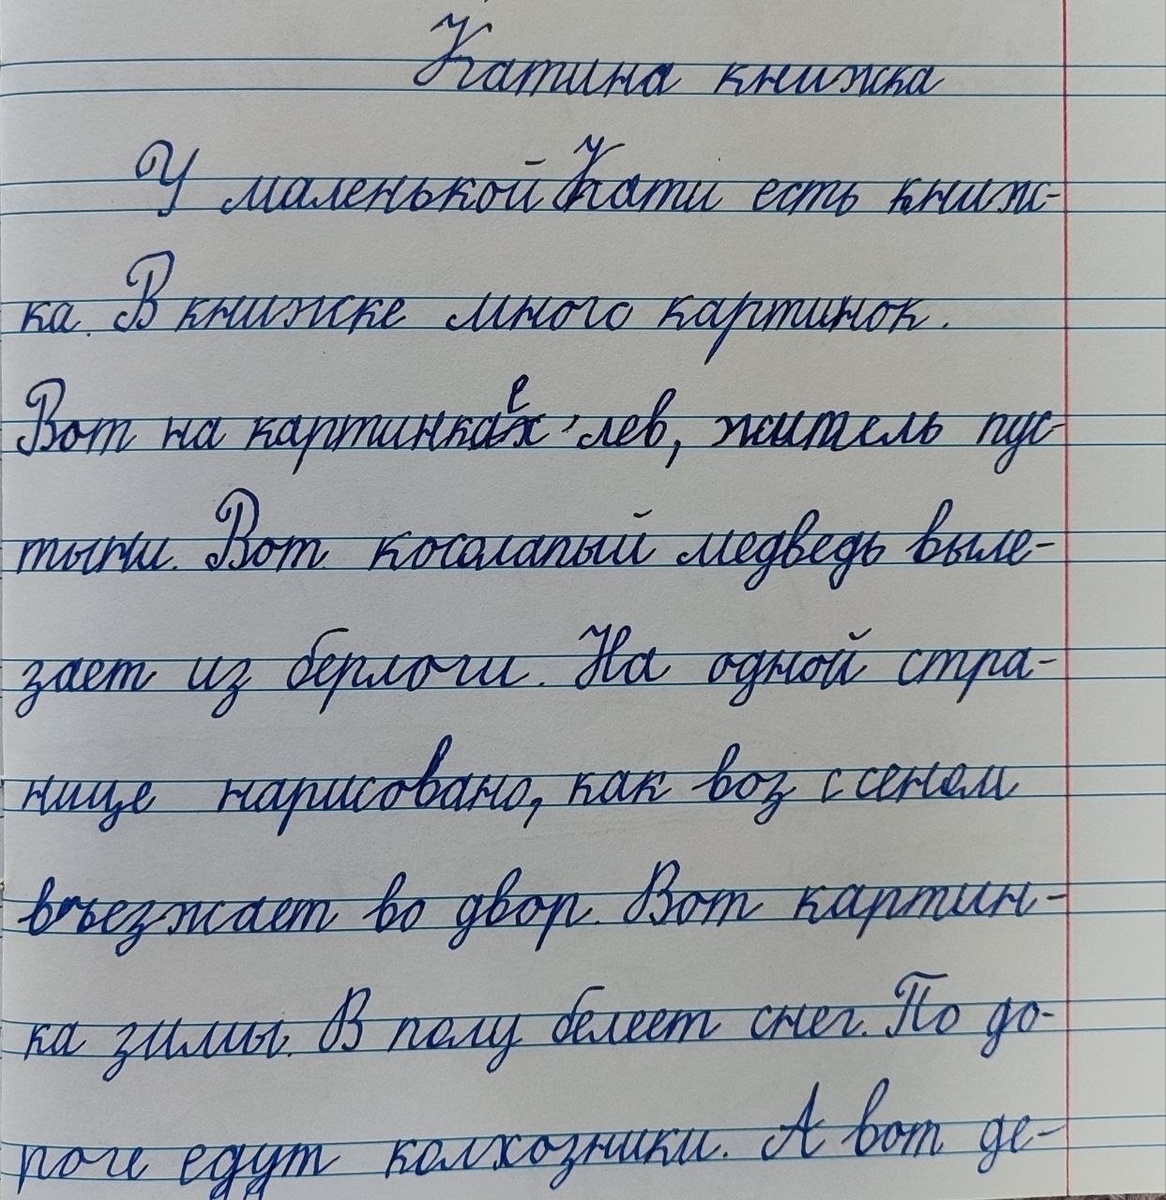 Катина книжка
У маленькой Кати есть книж-
ка. В книжке много картинок.
Вот на картинке лев, житель пус-
тыни. Вот косолапый медведь выле-
зает из берлоги. На одной стра-
нице нарисовано, как воз с сеном
въезжает во двор. Вот картин-
ка зимы. В полу белеет снег. По до-
роге едут колхозники. А вот де-